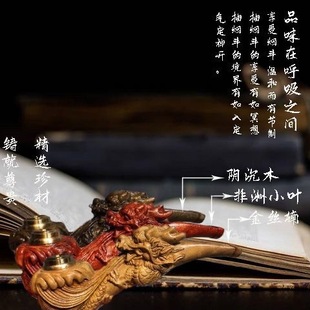 品味在呼吸之间
享受细斗 温和而有节制
抽细斗的享受有如冥想
抽细斗的境界有如入定
凭定神开。
精选珍材
铸就尊贵
阴沉木
非洲小叶
金丝楠